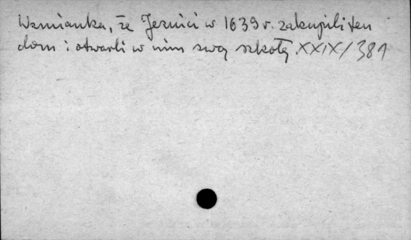 Wzmianka, że Jezuici w 1639 r. zakupili ten
dom i otwarli w nim swą szkołę XXIX/381